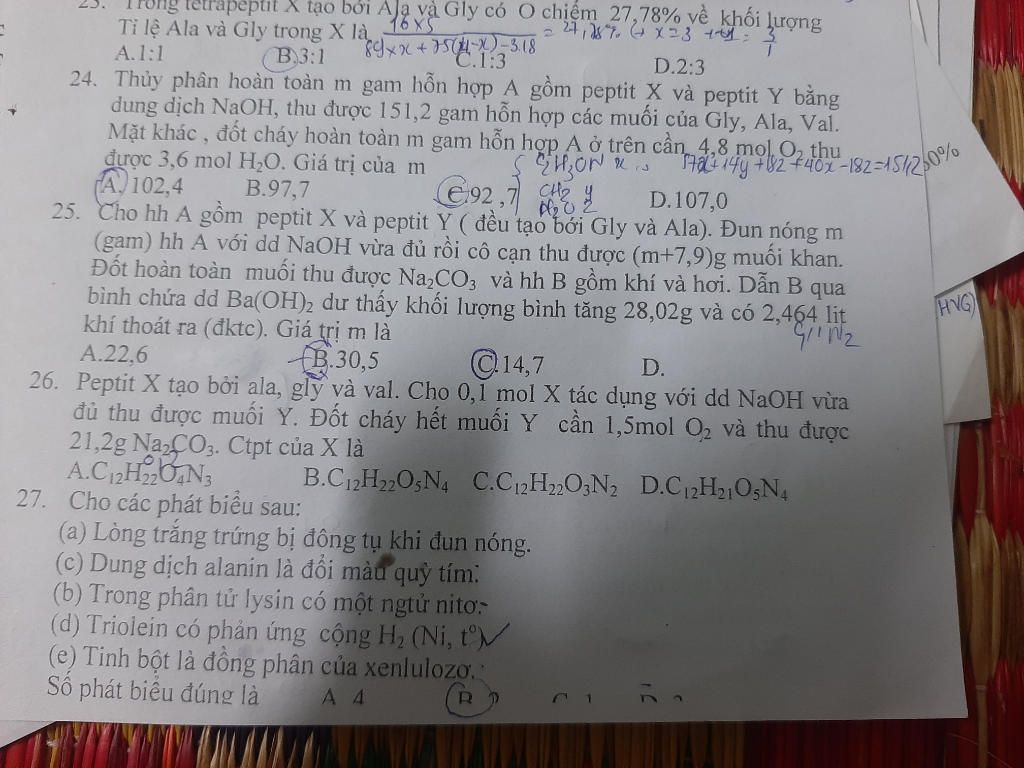 23. Trong tetrapeptit X tạo bởi Ala và Gly có O chiếm 27,78% về khối lượng
Tỉ lệ Ala và Gly trong X là
A.1:1 B.3:1 C.1:3 D.2:3
24. Thủy phân hoàn toàn m gam hỗn hợp A gồm peptit X và peptit Y bằng
dung dịch NaOH, thu được 151,2 gam hỗn hợp các muối của Gly, Ala, Val.
Mặt khác , đốt cháy hoàn toàn m gam hỗn hợp A ở trên cần 4,8 mol O₂ thu
được 3,6 mol H₂O. Giá trị của m
C₂H₃ON x
CH₂ y
H₂O z
30%
A.102,4 B.97,7 C.92,7 D.107,0
25. Cho hh A gồm peptit X và peptit Y ( đều tạo bởi Gly và Ala). Đun nóng m
(gam) hh A với dd NaOH vừa đủ rồi cô cạn thu được (m+7,9)g muối khan.
Đốt hoàn toàn muối thu được Na₂CO₃ và hh B gồm khí và hơi. Dẫn B qua
bình chứa dd Ba(OH)₂ dư thấy khối lượng bình tăng 28,02g và có 2,464 lit
HVG)
khí thoát ra (đktc). Giá trị m là
N₂
A.22,6 B.30,5 C.14,7 D.
26. Peptit X tạo bởi ala, gly và val. Cho 0,1 mol X tác dụng với dd NaOH vừa
đủ thu được muối Y. Đốt cháy hết muối Y cần 1,5mol O₂ và thu được
21,2g Na₂CO₃. Ctpt của X là
A.C₁₂H₂₂O₄N₃ B.C₁₂H₂₂O₅N₄ C.C₁₂H₂₂O₃N₂ D.C₁₂H₂₁O₅N₄
27. Cho các phát biểu sau:
(a) Lòng trắng trứng bị đông tụ khi đun nóng.
(c) Dung dịch alanin là đổi màu quỳ tím.
(b) Trong phân tử lysin có một ngtử nitơ.
(d) Triolein có phản ứng cộng H₂ (Ni, t°)
(e) Tinh bột là đồng phân của xenlulozơ.
Số phát biểu đúng là A 4 B